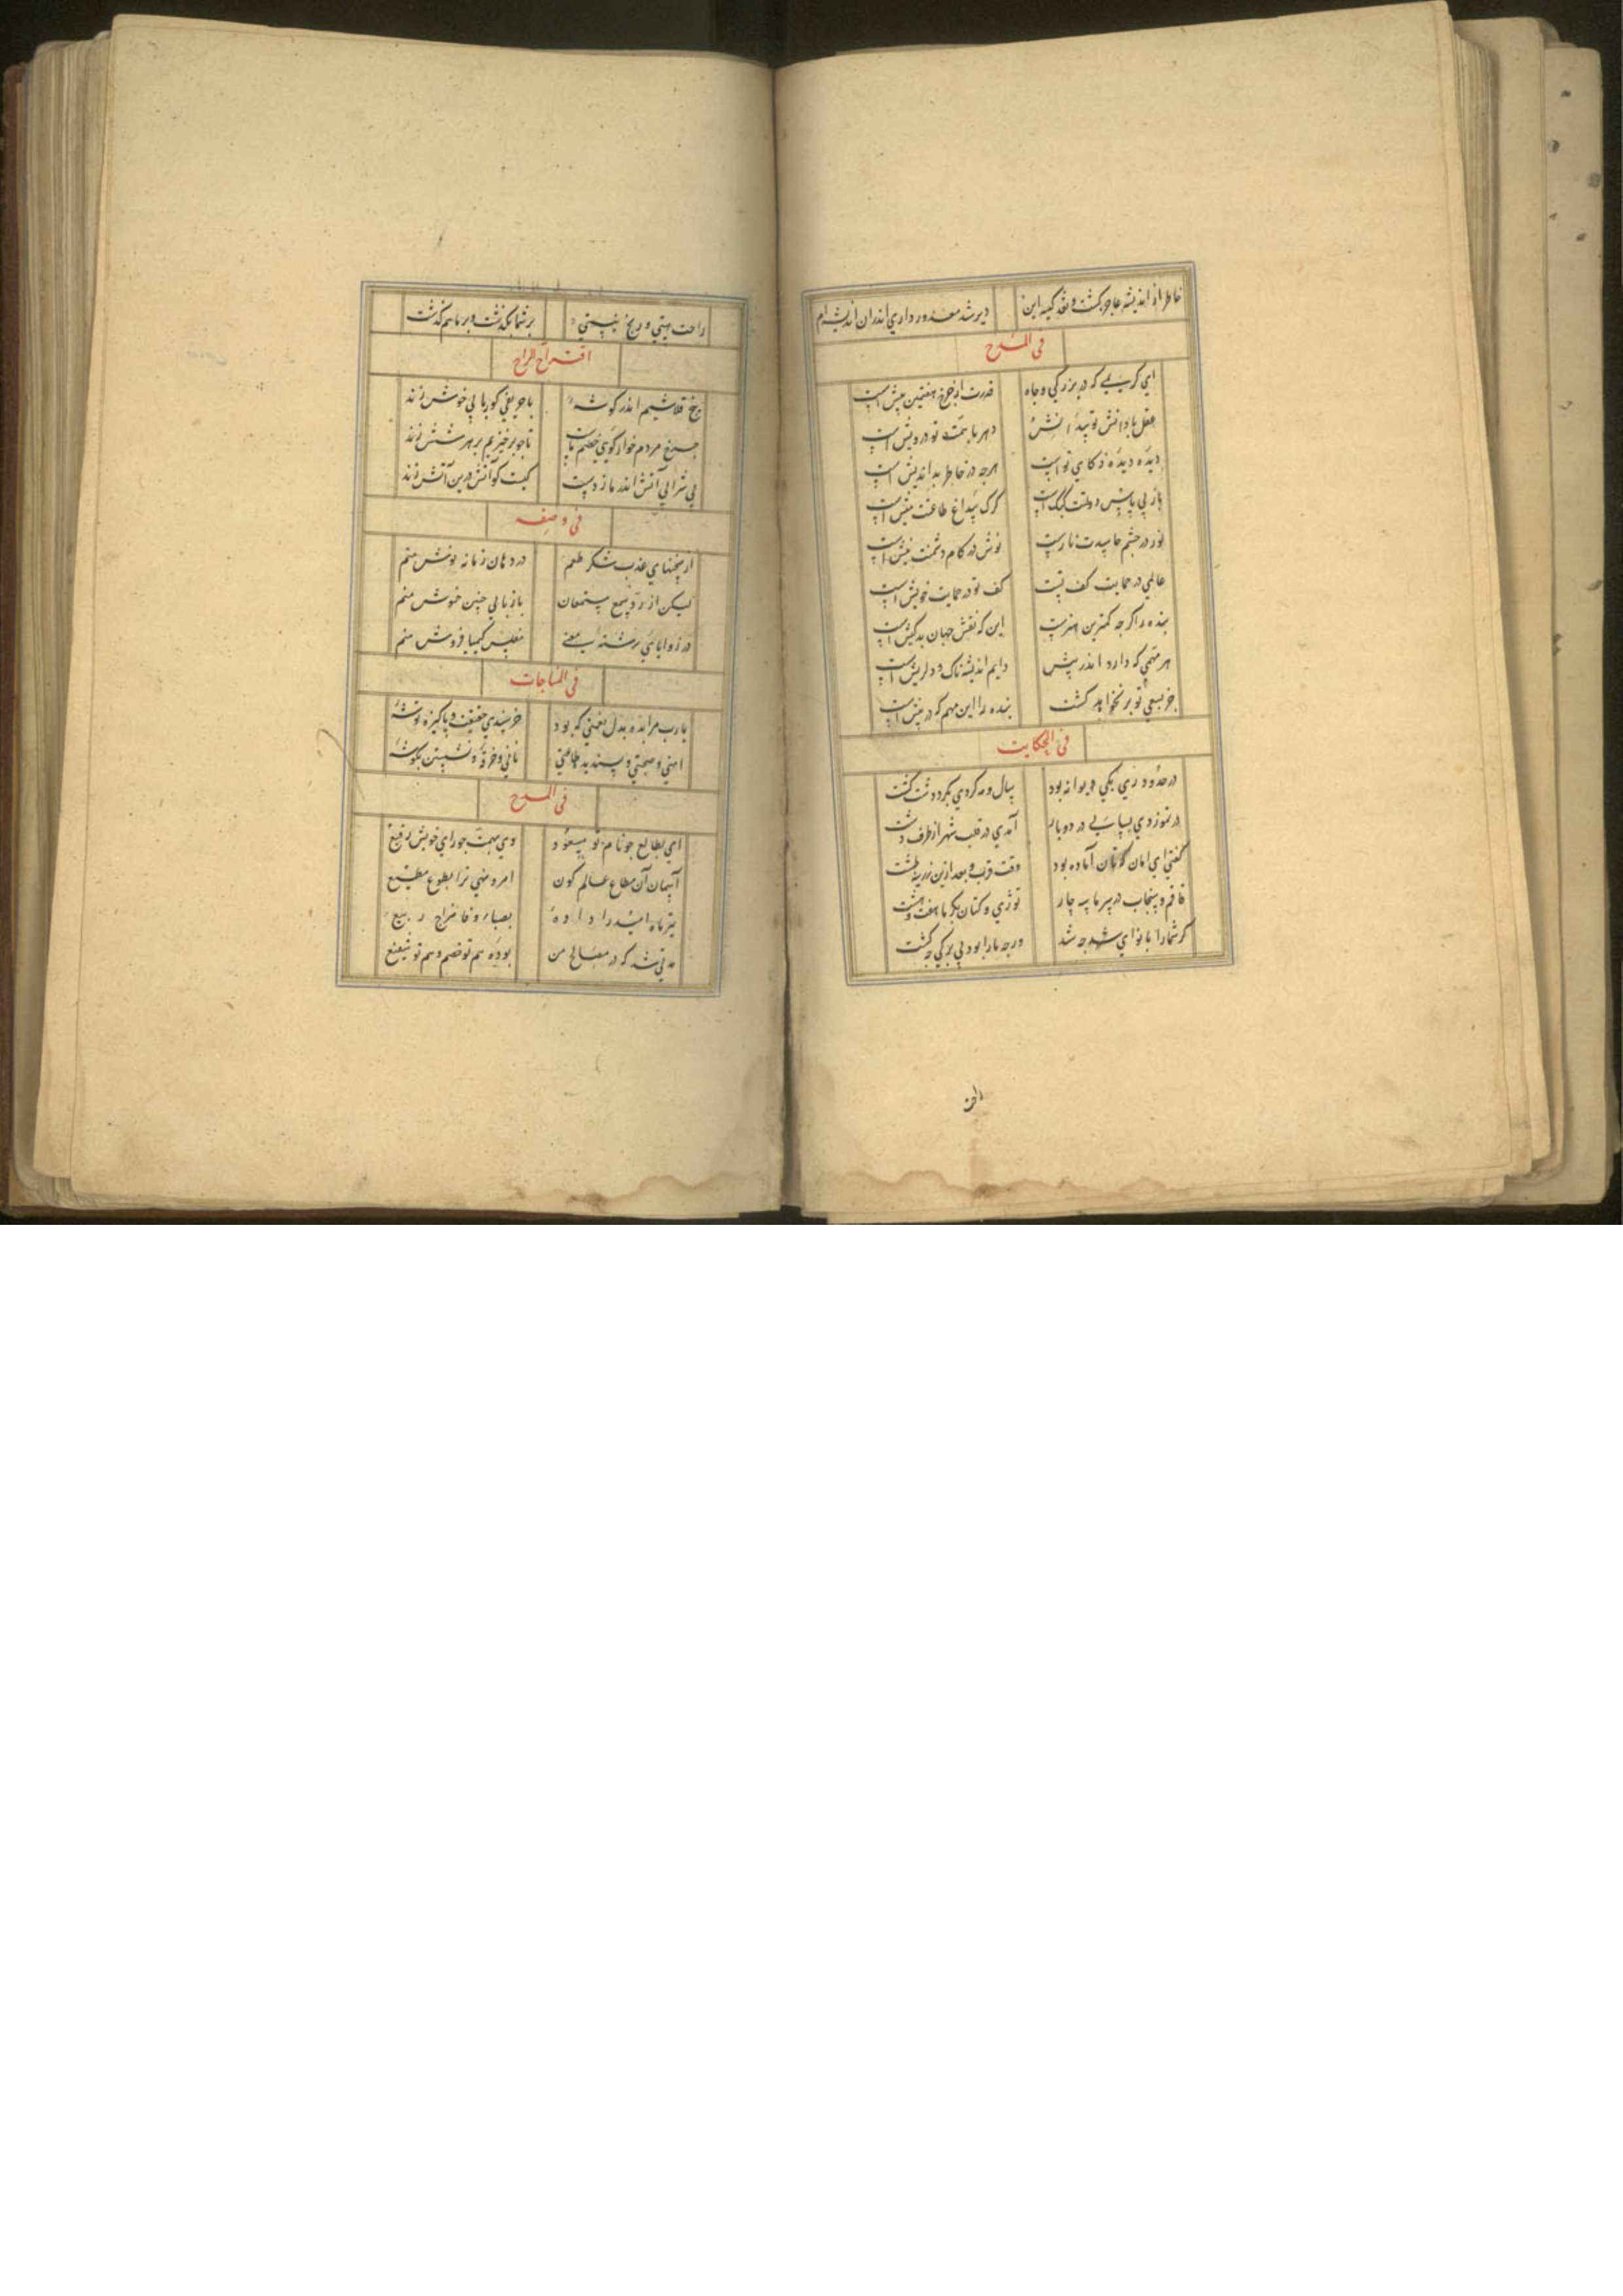 خاطر از اندیشه عاجز کشت و نقد کیسه این دیر شد معذور داری اندران اندیشه‌ام
فی المدح
ای کریمی که در بزرکی وجاه قدرت از چرخ هفتمین بیش است
عقل با دانش تو دهر با همت تو درویش است
دیده دیده ذکای تو است هرچه در خاطر بداندیش است
باز بی پاس دولتت کبک است کرک با داغ طاعتت میش است
نور در چشم حاسدت نارست نوش در کام دشمنت نیش است
عالمی در حمایت کف تست کف تو در حمایت خویش است
بنده را کرچه کمترین هنرست این که نقش جهان بدکیش است
هر مهمی که دارد اندر پیش دایم اندیشه ناک و دلریش است
جز بسعی تو بر نخواهد کشت بنده را این مهم که در پیش است
فی الحکایت
در حدود ری یکی دیوانه بود سال و مه کردی بکرد دشت کشت
در تموز و دی بسالی در دوبار آمدی در قلب شهر از طرف دشت
کفتی ای انان کتان آماده بود وقت قرب و بعد ازین زرینه طشت
قاقم و سنجاب در سرما سه چار توزی و کتان بکرما هفت و هشت
کر شمارا با نوای شد چه شد ور چه مارا بود بی برکی چه کشت
راحت
راحت هستی و رنج نیستی بر شما بکذشت و بر ما هم کذشت
اقتراح الراح
پنج قلاشیم اندر کوشه با حریفی کو ربابی خوش زند
چرخ مردم خوار کوی خصم ماست تا چو بر خیزیم بر هر شش زند
بی شرابی آتش اندر ما زدست کیست کو آتش درین آتش زند
فی وصفه
از سخنهای عذب شکر طعم در دهان زمانه نوش منم
لیکن از رد سمع مستمعان باز بالی چنین خموش منم
در زوایای رسته معنی مفلس کیمیا فروش منم
فی المناجات
یارب مرا بده بدل نعمتی که بود خرسندی حقیقت و پاکیزه توشهٔ
امنی و صحتی و پسندیده طاعتی نانی و خرقهٔ و نشستن بکوشهٔ
فی المدح
ای بطالع چو نام تو مسعود وی بهمت چو رای خویش رفیع
آسمان آن مطاع عالم کون امر و نهی ترا بطوع مطیع
تیرماه امید را داده بصبا وفا مزاج ربیع
مدتی شد که در مصالح من بوده هم تو خصم و هم تو شفیع